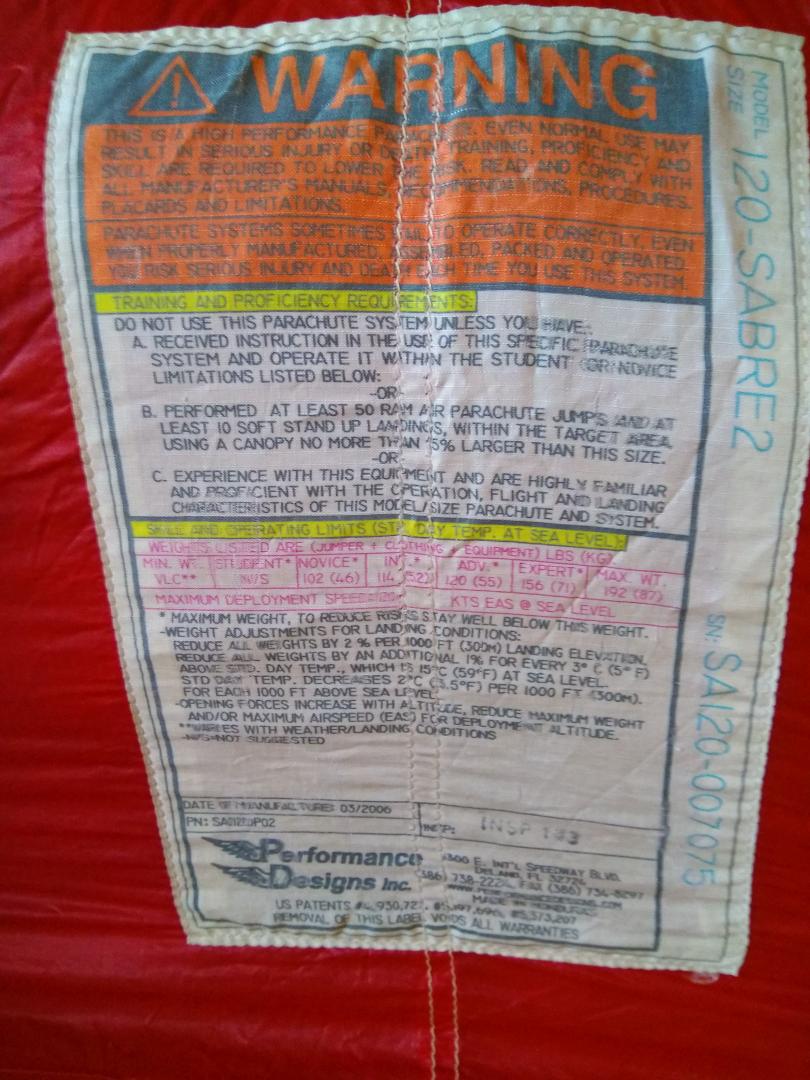 WARNING
THIS IS A HIGH PERFORMANCE PARACHUTE. EVEN NORMAL USE MAY
RESULT IN SERIOUS INJURY OR DEATH. TRAINING, PROFICIENCY AND
SKILL ARE REQUIRED TO LOWER THE RISK. READ AND COMPLY WITH
ALL MANUFACTURER'S MANUALS, RECOMMENDATIONS, PROCEDURES,
PLACARDS AND LIMITATIONS.
PARACHUTE SYSTEMS SOMETIMES FAIL TO OPERATE CORRECTLY, EVEN
WHEN PROPERLY MANUFACTURED, ASSEMBLED, PACKED AND OPERATED.
YOU RISK SERIOUS INJURY AND DEATH EACH TIME YOU USE THIS SYSTEM.
TRAINING AND PROFICIENCY REQUIREMENTS:
DO NOT USE THIS PARACHUTE SYSTEM UNLESS YOU HAVE:
A. RECEIVED INSTRUCTION IN THE USE OF THIS SPECIFIC PARACHUTE
SYSTEM AND OPERATE IT WITHIN THE STUDENT OR NOVICE
LIMITATIONS LISTED BELOW:
-OR-
B. PERFORMED AT LEAST 50 RAM AIR PARACHUTE JUMPS AND AT
LEAST 10 SOFT STAND UP LANDINGS, WITHIN THE TARGET AREA,
USING A CANOPY NO MORE THAN 15% LARGER THAN THIS SIZE.
-OR-
C. EXPERIENCE WITH THIS EQUIPMENT AND ARE HIGHLY FAMILIAR
AND PROFICIENT WITH THE OPERATION, FLIGHT AND LANDING
CHARACTERISTICS OF THIS MODEL/SIZE PARACHUTE AND SYSTEM.
SKILL AND OPERATING LIMITS (STD. DAY TEMP. AT SEA LEVEL):
WEIGHTS LISTED ARE (JUMPER + CLOTHING + EQUIPMENT) LBS (KG)
MIN. WT. STUDENT* NOVICE* INT.* ADV.* EXPERT* MAX. WT.
VLC** N/S 102 (46) 114 (52) 120 (55) 156 (71) 192 (87)
MAXIMUM DEPLOYMENT SPEED: 120 KTS EAS @ SEA LEVEL
* MAXIMUM WEIGHT, TO REDUCE RISKS STAY WELL BELOW THIS WEIGHT.
-WEIGHT ADJUSTMENTS FOR LANDING CONDITIONS:
REDUCE ALL WEIGHTS BY 2 % PER 1000 FT (300M) LANDING ELEVATION.
REDUCE ALL WEIGHTS BY AN ADDITIONAL 1% FOR EVERY 3° C (5° F)
ABOVE STD. DAY TEMP., WHICH IS 15°C (59°F) AT SEA LEVEL.
STD DAY TEMP. DECREASES 2°C (3.5°F) PER 1000 FT (300M).
FOR EACH 1000 FT ABOVE SEA LEVEL
-OPENING FORCES INCREASE WITH ALTITUDE, REDUCE MAXIMUM WEIGHT
AND/OR MAXIMUM AIRSPEED (EAS) FOR DEPLOYMENT ALTITUDE.
**VARIES WITH WEATHER/LANDING CONDITIONS
-N/S=NOT SUGGESTED
DATE OF MANUFACTURE: 03/2006
PN: INSP: INSP 183
Performance
Designs Inc.
1300 E. INT'L SPEEDWAY BLVD.
DELAND, FL 32724
(386) 738-2224, FAX (386) 734-8297
WWW.PERFORMANCEDESIGNS.COM
MADE IN HONDURAS
US PATENTS #5,373,207
REMOVAL OF THIS LABEL VOIDS ALL WARRANTIES
MODEL
SIZE 120-SABRE2
SN: SA120-007075